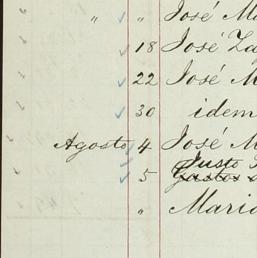 " " José Ma
18 José Za
22 José M
30 idem
Agosto 4 José M
Justo
5 Gastos
" Maria